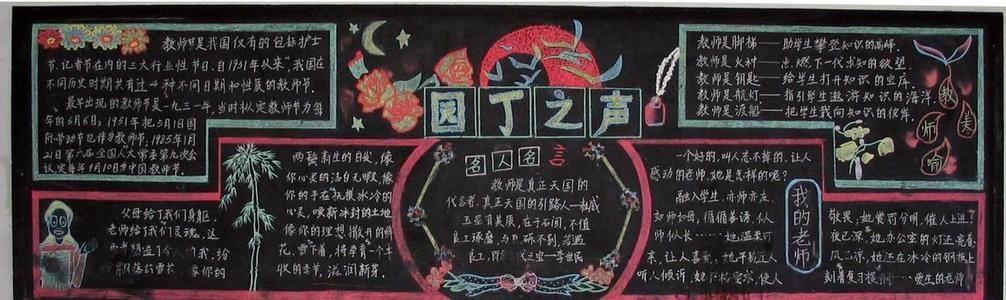 教师节是我国仅有的包括护士
节、记者节在内的三大行业性节日。自1931年以来，我国在
不同历史时期共有过4种不同日期和性质的教师节。
最早出现的教师节是一九三一年，当时拟定教师节为每
年的6月6日，1951年把5月1日国
际劳动节也作为教师节，1985年1月
21日第六届全国人大常委第九次会
议定每年9月10日为中国教师节。
园丁之声
教师是脚梯——助学生攀登知识的高峰。
教师是火树——点燃下一代求知的欲望。
教师是钥匙——给学生打开知识的宝库。
教师是航灯——指引学生遨游知识的海洋。
教师是渡船——把学生载向知识的彼岸。
教
师
美
喻
父母给了我们身躯，
老师给了我们灵魂，这
两颗新生的日发，像
你心灵的洁白无暇，像
你的手在抚摸冰冷的
心灵，唤新冰封的土地
像你的理想撒开的鲜
花。雪下着，将孕育一个丰
收的季节，滋润新芽。
名人名言
教师是真正天国的
代言者，真正天国的引路人
玉虽有美质，在于石间，不值
良工琢磨，与瓦砾不别，若遇
良工，李世民
一个好的，叫人忘不掉的，让人
感动的老师，她是怎样的呢？
融入学生，亦师亦友，
如师如母，循循善诱，似人
师似人长……她温柔可
亲，让人喜爱，她平易近人
听人倾诉，使人
我的老师
敬畏，她赏罚分明，催人上进
夜已深，她办公室的灯还亮着
风已凉，她还在冰冷的钢板上
刻着复习提纲……爱生的老师